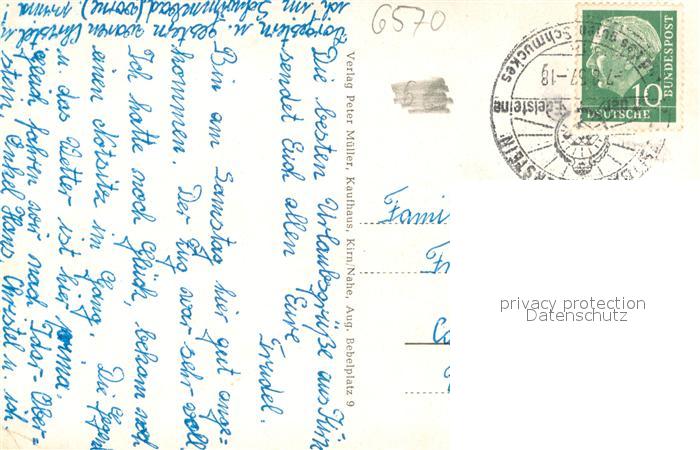 6570
Die besten Urlaubsgrüße aus Kirn
sendet Euch allen Eure
Trudel.
Bin am Samstag hier gut ange-
kommen. Der Zug war sehr voll
Ich hatte noch Glück, bekam noch
einen Notsitz im Gang. Die Gegend
u. das Wetter ist hier prima.
Gleich fahren wir nach Idar-Ober-
stein, Onkel Hans, Christel u. ich.
Vorgestern u. gestern waren Christel u.
ich im Schwimmbad (vorne), prima
Verlag Peter Müller, Kaufhaus, Kirn/Nahe, Aug. Bebelplatz 9
Fami
Fr
DEUTSCHE BUNDESPOST
10
-7.6.57-18
Edelsteine
Schmuckes
privacy protection
Datenschutz